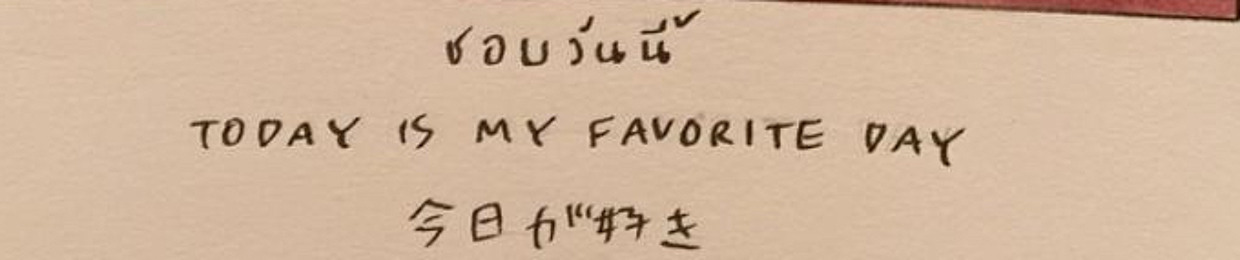 ชอบวันนี้
TODAY IS MY FAVORITE DAY
今日が好き